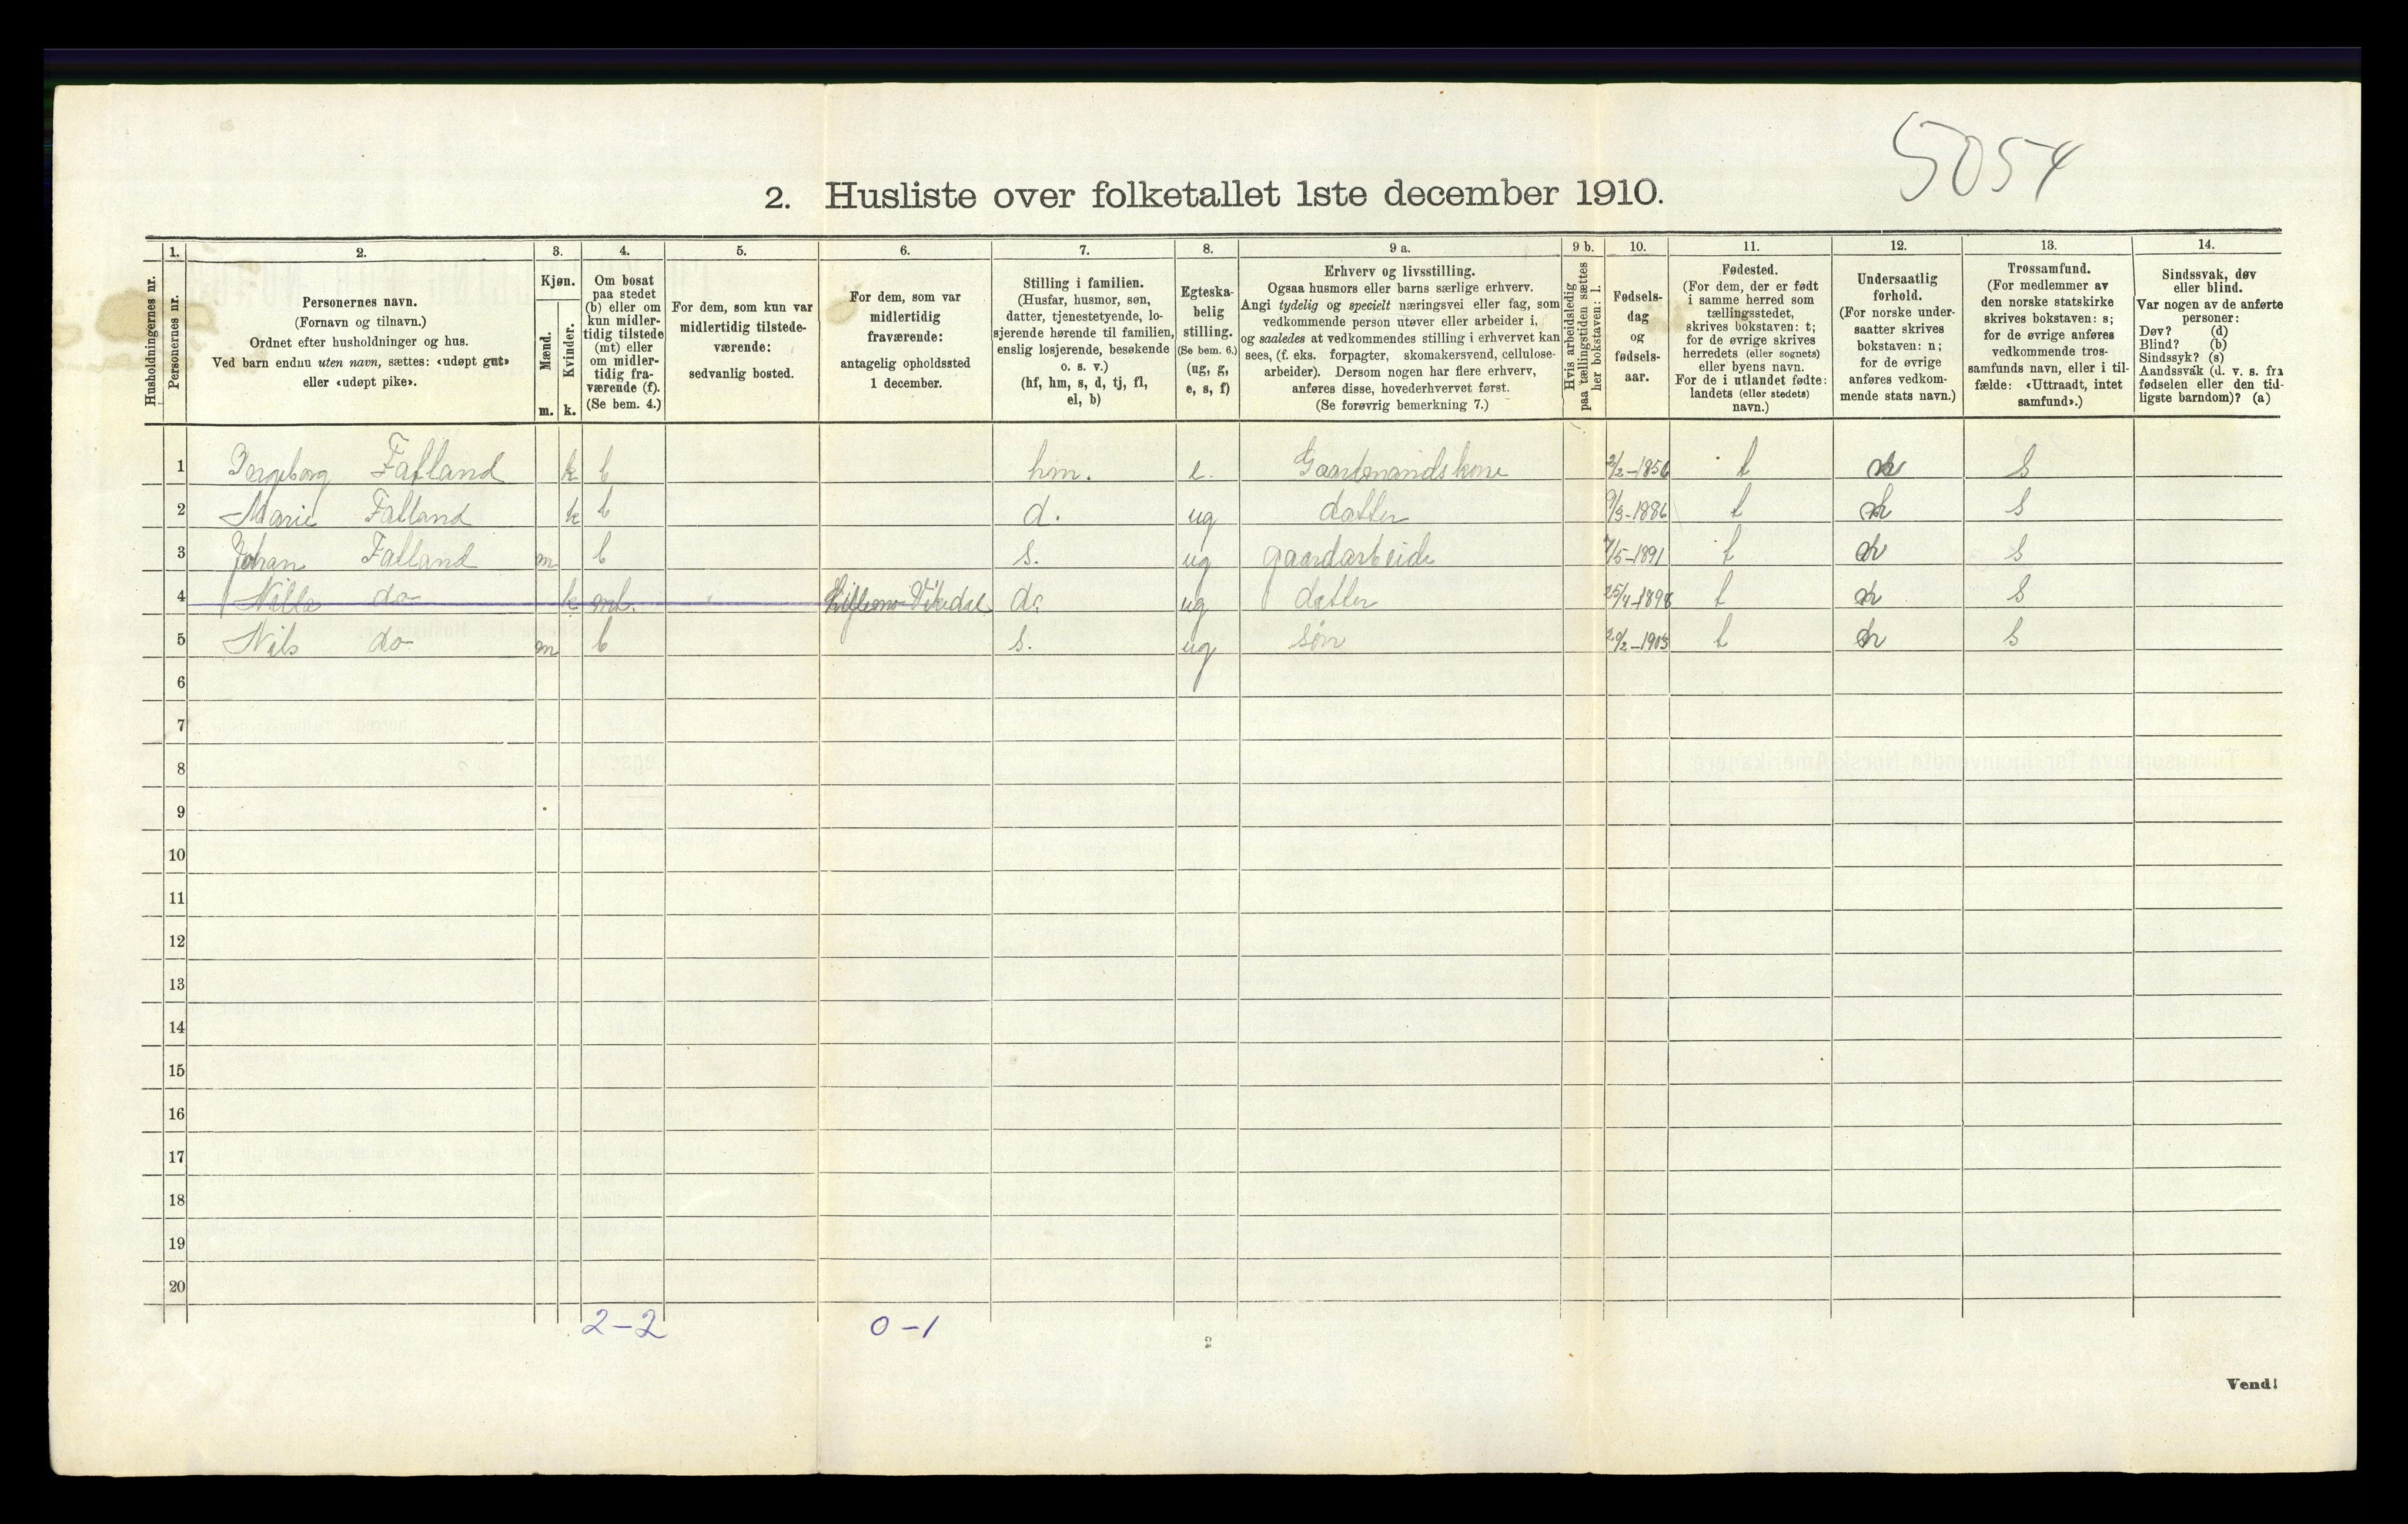 5054
2. Husliste over folketallet 1ste december 1910.
Husholdningernes nr.
1. Personernes nr.
2. Personernes navn.
(Fornavn og tilnavn.)
Ordnet efter husholdninger og hus.
Ved barn endnu uten navn, sættes: «udøpt gut»
eller «udøpt pike».
3. Kjøn.
Mænd. m.
Kvinder. k.
4. Om bosat
paa stedet
(b) eller om
kun midler-
tidig tilstede
(mt) eller
om midler-
tidig fra-
værende (f).
(Se bem. 4.)
5. For dem, som kun var
midlertidig tilstede-
værende:
sedvanlig bosted.
6. For dem, som var
midlertidig
fraværende:
antagelig opholdssted
1 december.
7. Stilling i familien.
(Husfar, husmor, søn,
datter, tjenestetyende, lo-
sjerende hørende til familien,
enslig losjerende, besøkende
o. s. v.)
(hf, hm, s, d, tj, fl,
el, b)
8. Egteska-
belig
stilling.
(Se bem. 6.)
(ug, g,
e, s, f)
9 a. Erhverv og livsstilling.
Ogsaa husmors eller barns særlige erhverv.
Angi tydelig og specielt næringsvei eller fag, som
vedkommende person utøver eller arbeider i,
og saaledes at vedkommendes stilling i erhvervet kan
sees, (f. eks. forpagter, skomakersvend, cellulose-
arbeider). Dersom nogen har flere erhverv,
anføres disse, hovederhvervet først.
(Se forøvrig bemerkning 7.)
9 b. Hvis arbeidsledig
paa tællingstiden sættes
her bokstaven: l.
10. Fødsels-
dag
og
fødsels-
aar.
11. Fødested.
(For dem, der er født
i samme herred som
tællingsstedet,
skrives bokstaven: t;
for de øvrige skrives
herredets (eller sognets)
eller byens navn.
For de i utlandet fødte:
landets (eller stedets)
navn.)
12. Undersaatlig
forhold.
(For norske under-
saatter skrives
bokstaven: n;
for de øvrige
anføres vedkom-
mende stats navn.)
13. Trossamfund.
(For medlemmer av
den norske statskirke
skrives bokstaven: s;
for de øvrige anføres
vedkommende tros-
samfunds navn, eller i til-
fælde: «Uttraadt, intet
samfund».)
14. Sindssvak, døv
eller blind.
Var nogen av de anførte
personer:
Døv? (d)
Blind? (b)
Sindssyk? (s)
Aandssvak (d. v. s. fra
fødselen eller den tid-
ligste barndom)? (a)
1 Ingeborg Fatland k b hm. e. Gaardmandskone 2/2-1856 t n s
2 Marie Fatland k b d. ug datter 9/3-1886 t n s
3 Johan Fatland m b s. ug gaardarbeide 7/5-1891 t n s
4 Nilla do k mt. Vikedal d. ug datter 25/4-1898 t n s
5 Nils do m b s. ug søn t n s
6
7
8
9
10
11
12
13
14
15
16
17
18
19
20
2-2 0-1
Vend!